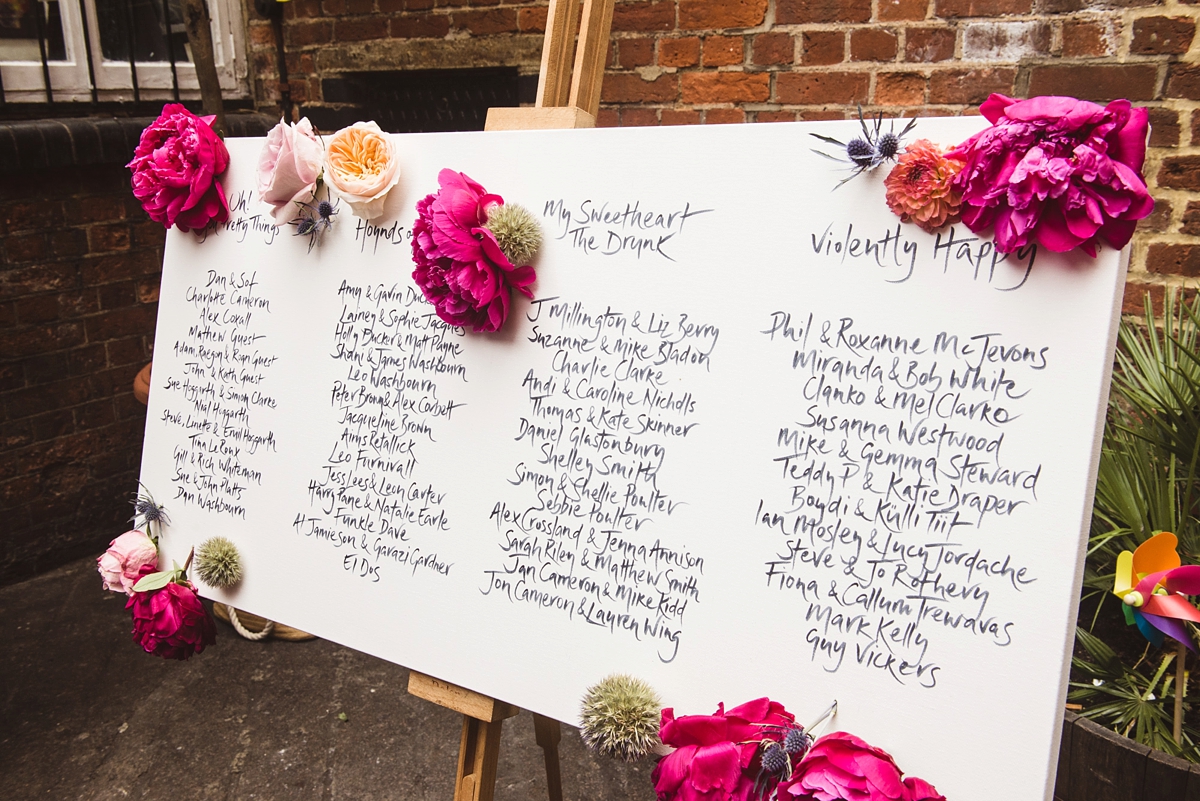 Uh!
Pretty Things
Dan & Sof
Charlotte Cameron
Alex Coxall
Mathew Guest
Adam, Raegin & Roan Guest
John & Kath Guest
Sue Hoggarth & Simon Clarke
Niall Hoggarth
Steve, Linette & Hoggarth
Tina LeRoux
Gill & Rich Whiteman
Sue & John Platts
Dan Washbourn
Hounds of
Amy & Gavin
Lainey & Sophie Jacques
Holly Bucker & Matt Panne
Shani & James Washbourn
Leo Washbourn
Peter Brown & Alex Corbett
Jacqueline Brown
Aims Retallick
Leo Furnivall
Jess Lees & Leon Carter
Harry Pane & Natalie Earle
Funkle Dave
Al Jamieson & Garazi Gardner
El Dos
My Sweetheart
The Drunk
J Millington & Liz Berry
Suzanne & Mike Bladon
Charlie Clarke
Andi & Caroline Nicholls
Thomas & Kate Skinner
Daniel Glastonbury
Shelley Smith
Simon & Shellie Poulter
Sebbie Poulter
Alex Crossland & Jenna Annison
Sarah Riley & Matthew Smith
Jan Cameron & Mike Kidd
Jon Cameron & Lauren Wing
Violently Happy
Phil & Roxanne McTevons
Miranda & Bob White
Clanko & Mel Clarko
Susanna Westwood
Mike & Gemma Steward
Teddy P & Katie Draper
Boydi & Külli Tiit
Ian Mosley & Lucy Jordache
Steve & Jo Rothery
Fiona & Callum Trewavas
Mark Kelly
Guy Vickers